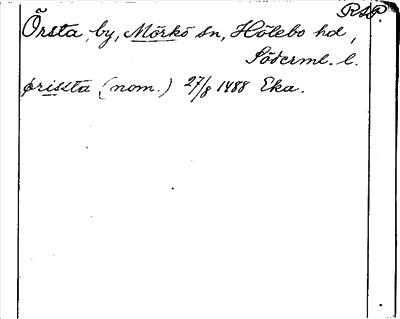 RSP.
Örsta, by, Mörkö sn, Hölebo hd,
Söderml. l.
øriszta (nom.) 27/8 1488 Eka.